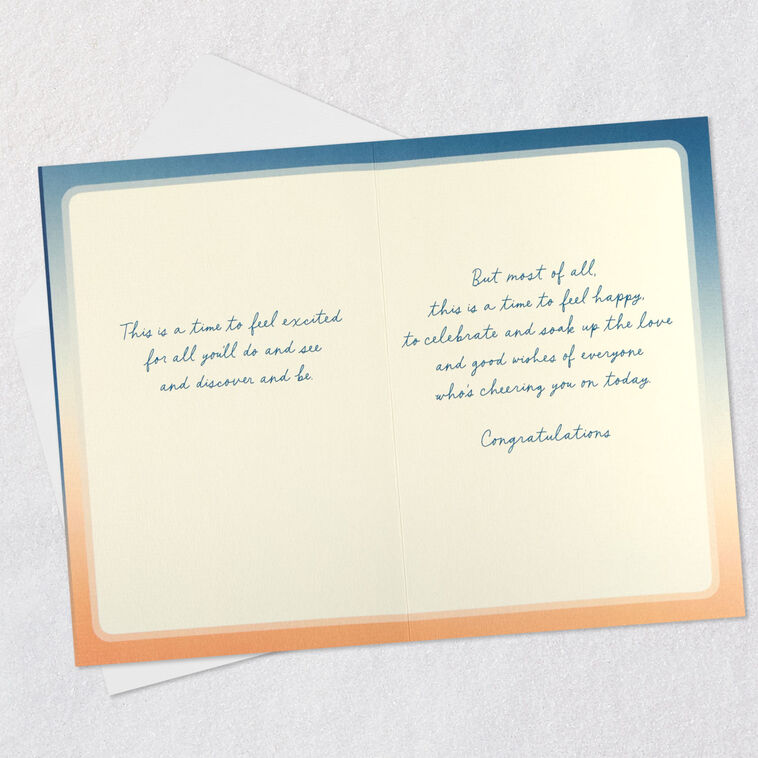 This is a time to feel excited
for all you'll do and see
and discover and be.
But most of all,
this is a time to feel happy,
to celebrate and soak up the love
and good wishes of everyone
who's cheering you on today.
Congratulations